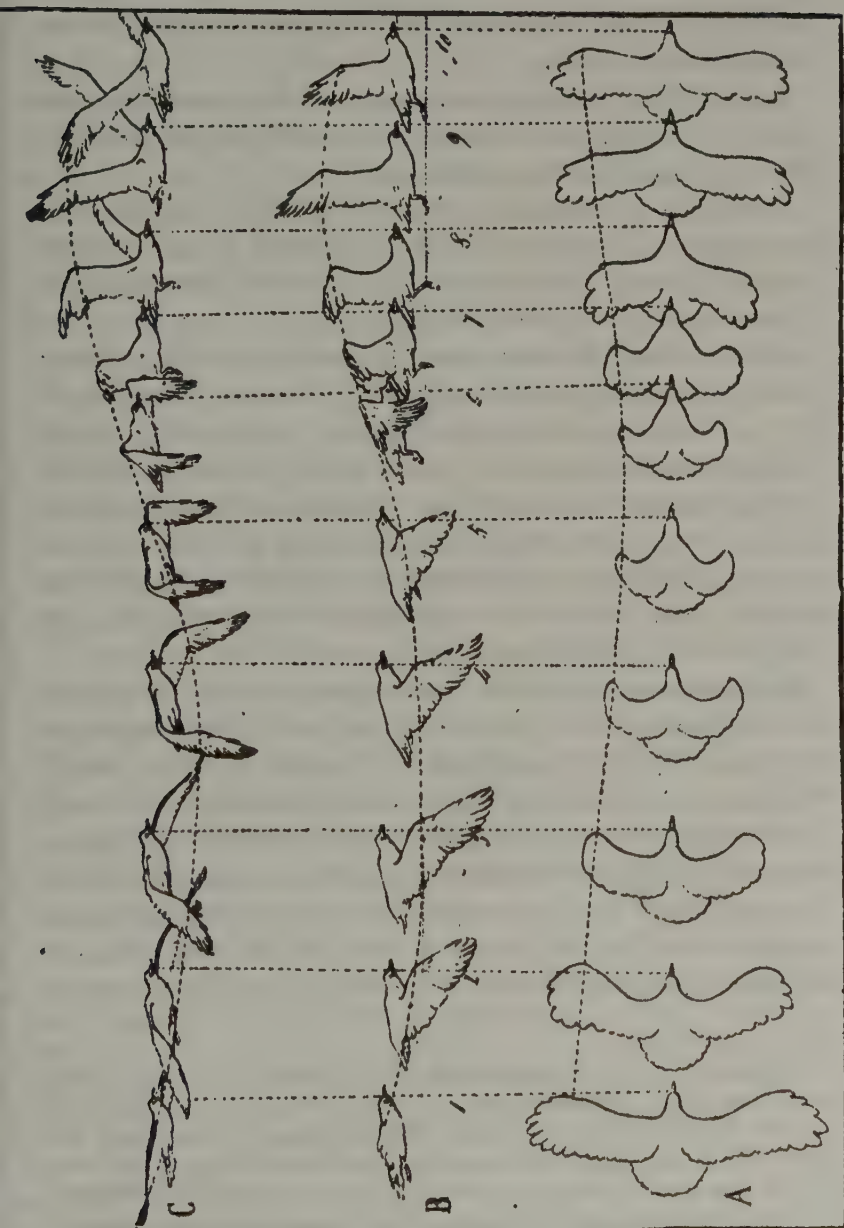 C
B
1 2 3 4 5 6 7 8. 9 10
A